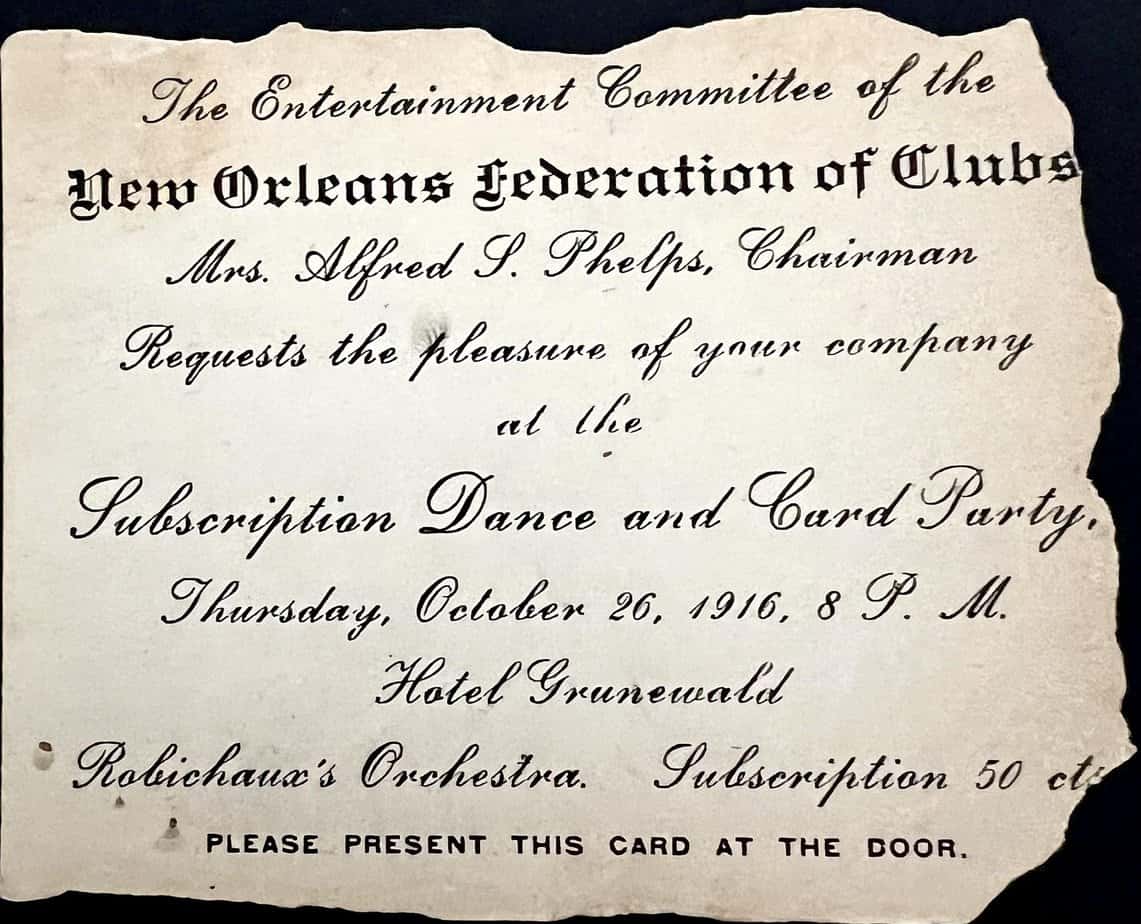 The Entertainment Committee of the
New Orleans Federation of Clubs
Mrs. Alfred S. Phelps, Chairman
Requests the pleasure of your company
at the
Subscription Dance and Card Party,
Thursday, October 26, 1916, 8 P. M.
Hotel Grunewald
Robichaux's Orchestra. Subscription 50 cts
PLEASE PRESENT THIS CARD AT THE DOOR.